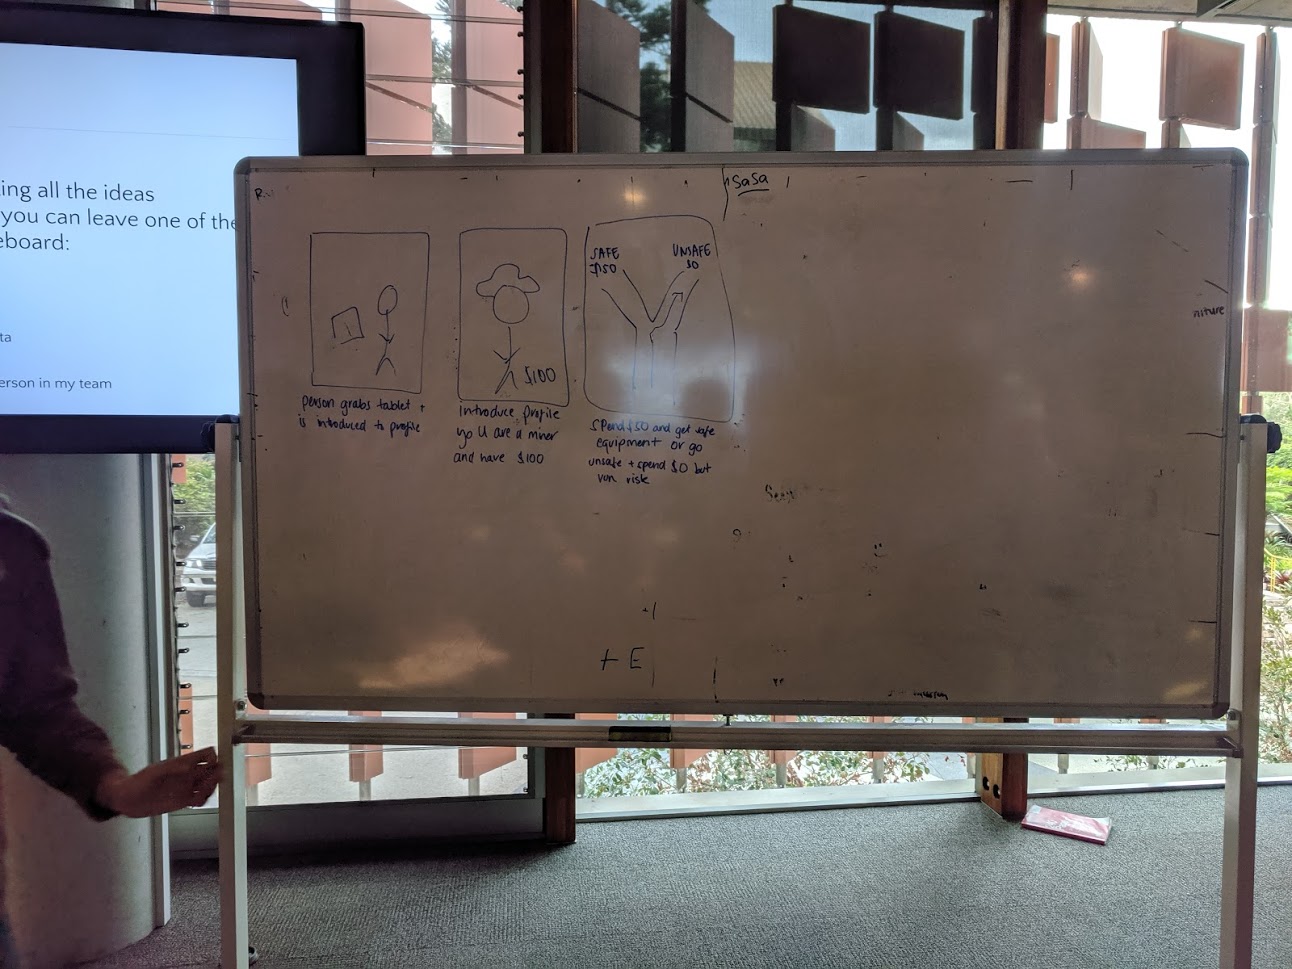 ing all the ideas
you can leave one of the
eboard:
ta
erson in my team
SaSa
SAFE
$50
UNSAFE
$0
$100
person grabs tablet +
is introduced to profile
Introduce profile
yo U are a miner
and have $100
Spend $50 and get safe
equipment or go
unsafe + spend $0 but
run risk
niture
+ E